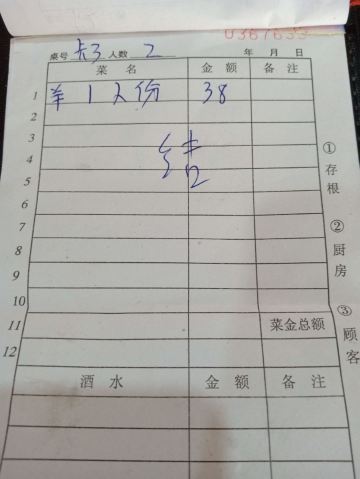 0387633
桌号 卡3 人数 2 年 月 日
菜名 金额 备注
1 羊1人份 38
2
3
4 结
5
6
7
8
9
10
11 菜金总额
12
酒水 金额 备注
①存根
②厨房
③顾客